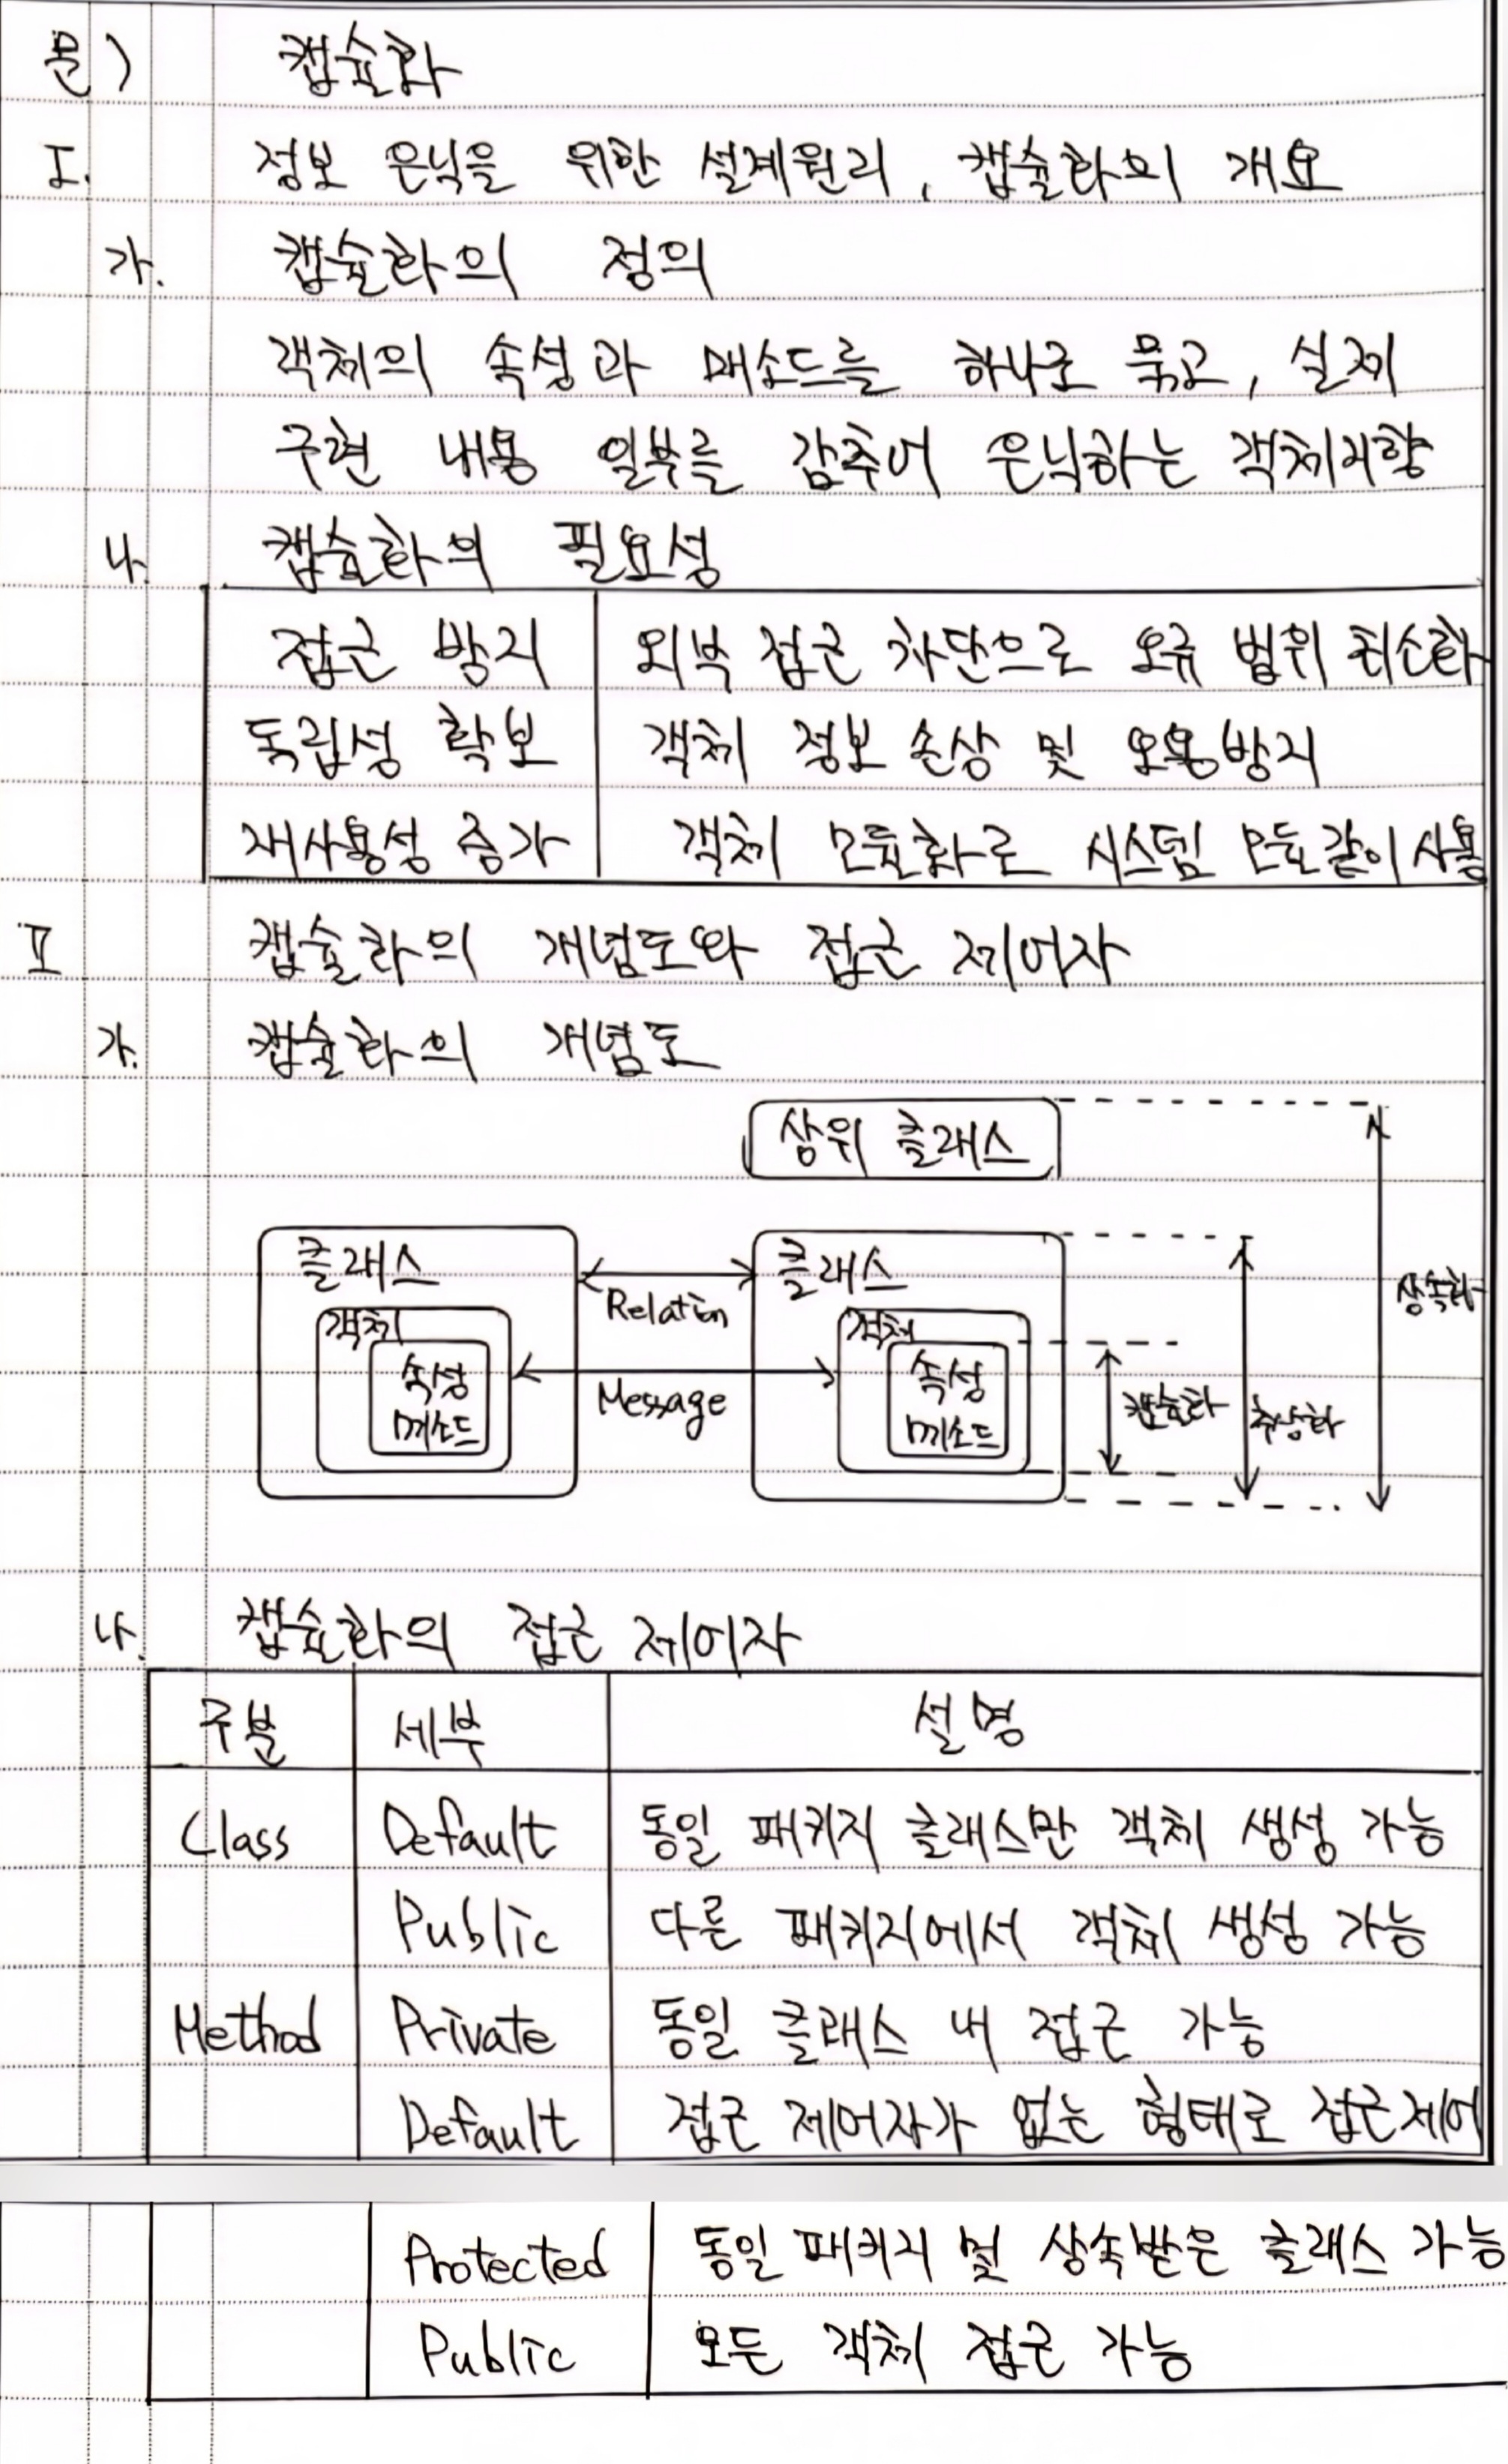 문) 캡슐화
I. 정보 은닉을 위한 설계원리, 캡슐화의 개요
가. 캡슐화의 정의
객체의 속성과 매소드를 하나로 묶고, 실제
구현 내용 일부를 감추어 은닉하는 객체지향
나. 캡슐화의 필요성
접근 방지 외부 접근 차단으로 오류 범위 최소화
독립성 확보 객체 정보 손상 및 오용방지
재사용성 증가 객체 모듈화로 시스템 모듈같이 사용
II 캡슐화의 개념도와 접근 제어자
가. 캡슐화의 개념도
상위 클래스
클래스 클래스
Relation
객체 객체
상속화
속성 속성
메소드 Message 메소드 캡슐화 추상화
나. 캡슐화의 접근 제어자
구분 세부 설명
Class Default 동일 패키지 클래스만 객체 생성 가능
Public 다른 패키지에서 객체 생성 가능
Method Private 동일 클래스 내 접근 가능
Default 접근 제어자가 없는 형태로 접근제어
Protected 동일 패키지 및 상속받은 클래스 가능
Public 모든 객체 접근 가능